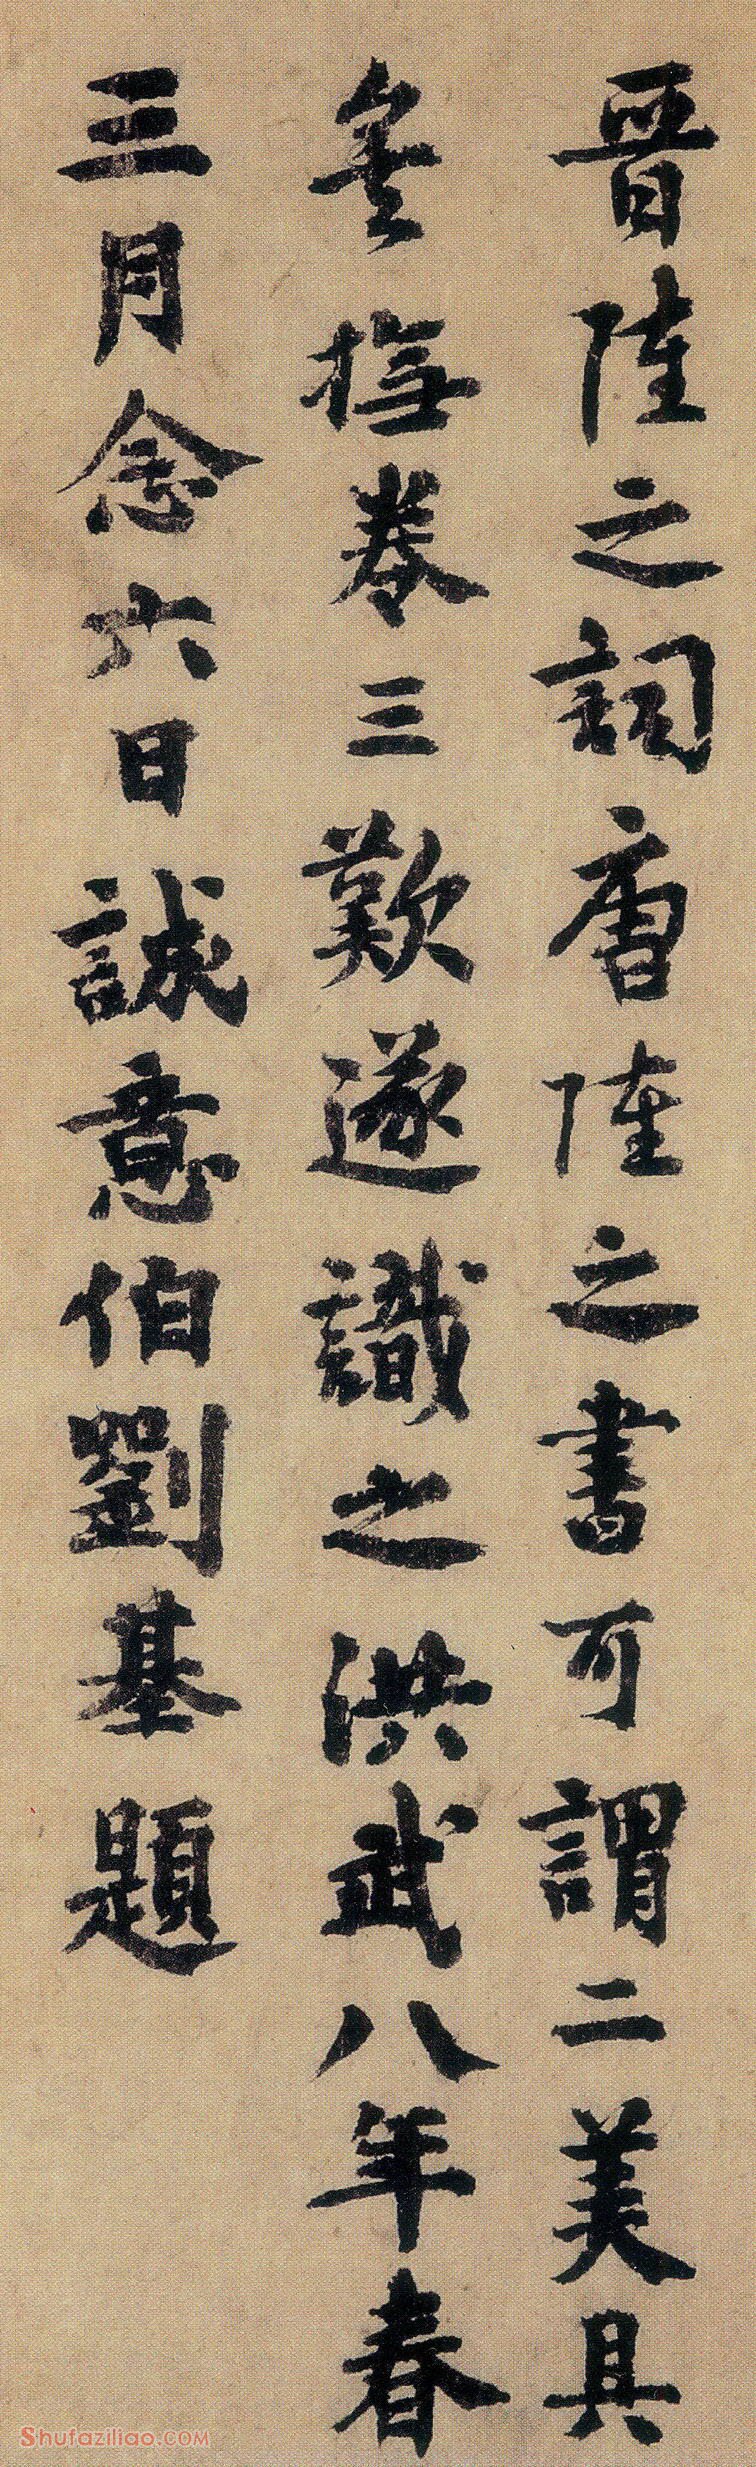 晉陸之詞唐陸之書可謂二美具
矣撫卷三歎遂識之洪武八年春
三月念六日誠意伯劉基題
Shufaziliao.com